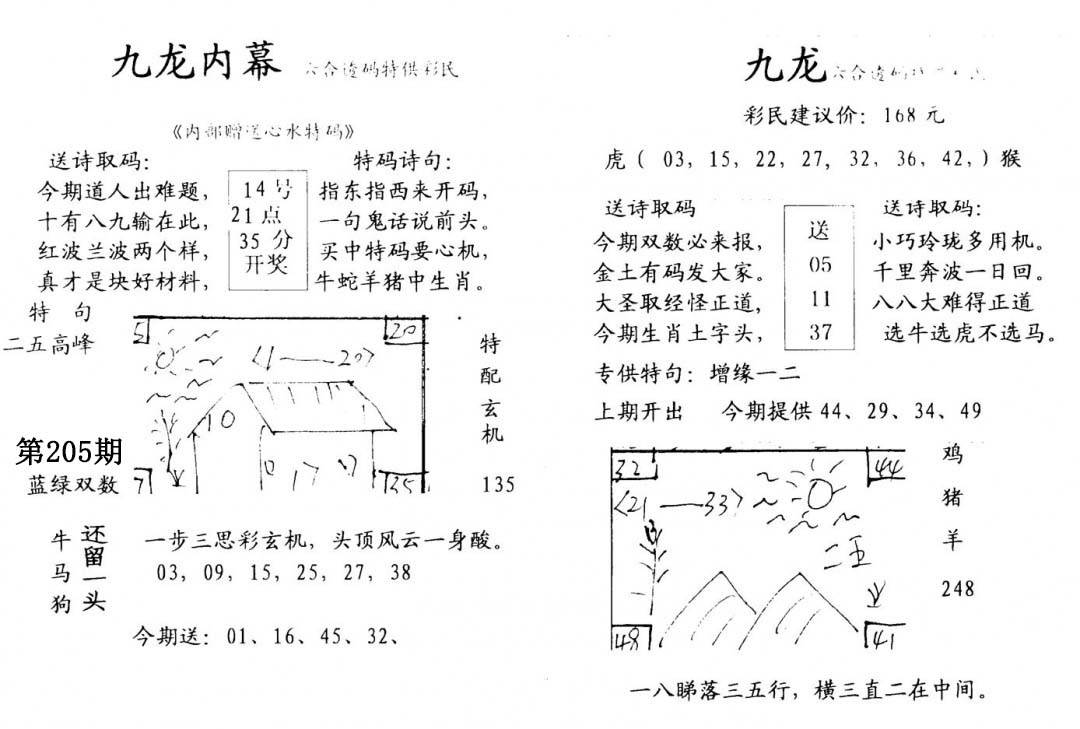 九龙内幕 六合透码特供彩民
《内部赠送心水特码》
送诗取码：
今期道人出难题，
十有八九输在此，
红波兰波两个样，
真才是块好材料，
14号
21点
35分
开奖
特码诗句：
指东指西来开码，
一句鬼话说前头。
买中特码要心机，
牛蛇羊猪中生肖。
特句
二五高峰
第205期
蓝绿双数
5
20
〈1——20〉
10
0 17
7
35
特
配
玄
机
135
牛
马
狗
还
留
一
头
一步三思彩玄机，头顶风云一身酸。
03，09，15，25，27，38
今期送：01、16、45、32、
九龙六合透码
彩民建议价：168元
虎（03，15，22，27，32，36，42，）猴
送诗取码
今期双数必来报，
金土有码发大家。
大圣取经怪正道，
今期生肖土字头，
送
05
11
37
送诗取码：
小巧玲珑多用机。
千里奔波一日回。
八八大难得正道
选牛选虎不选马。
专供特句：增缘一二
上期开出 今期提供44、29、34、49
32
44
〈21——33〉
二五
48
41
鸡
猪
羊
248
一八睇落三五行，横三直二在中间。